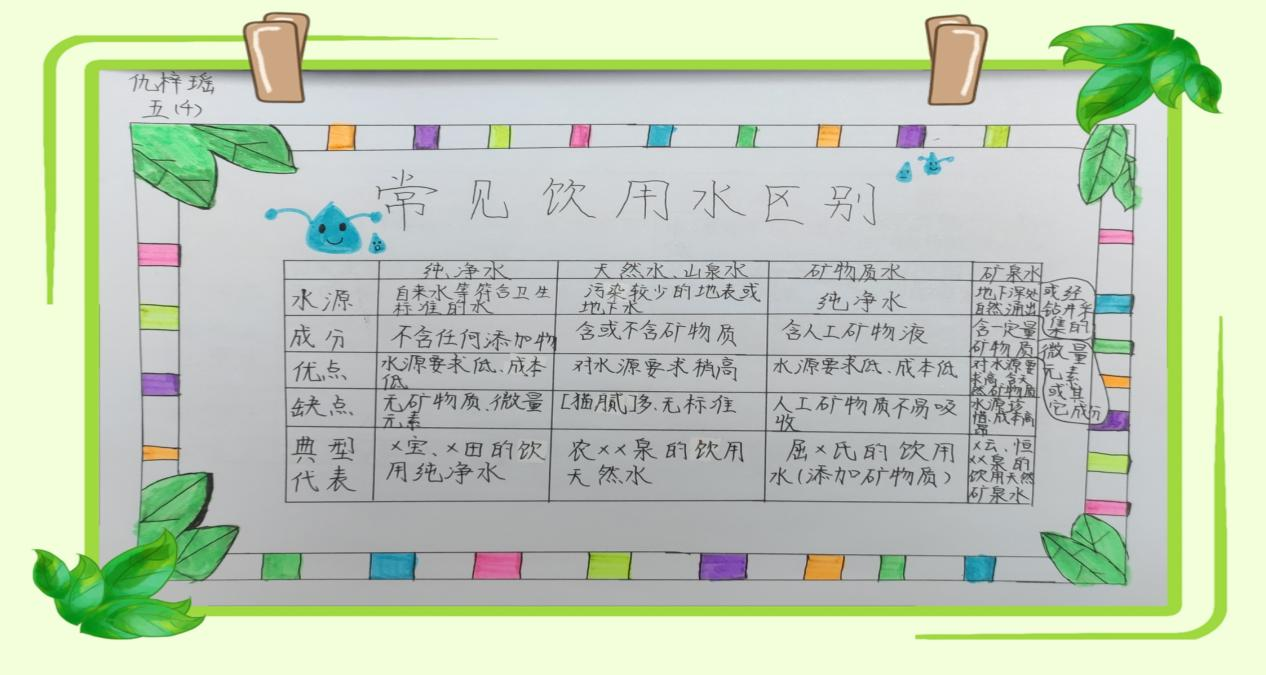 仇梓瑶
五(4)
常见饮用水区别
纯净水 天然水、山泉水 矿物质水 矿泉水
水源 自来水等符合卫生标准的水 污染较少的地表或地下水 纯净水 地下深处自然涌出或经钻井采集的
成分 不含任何添加物 含或不含矿物质 含人工矿物液 含一定量矿物质微量元素或其它成分
优点 水源要求低、成本低 对水源要求稍高 水源要求低、成本低 对水源要求高,含天然矿物质
缺点 无矿物质、微量元素 [猫腻]多、无标准 人工矿物质不易吸收 水源珍惜,成本高昂
典型代表 ×宝、×田的饮用纯净水 农××泉的饮用天然水 屈×氏的饮用水(添加矿物质) ×云、恒××泉的饮用天然矿泉水